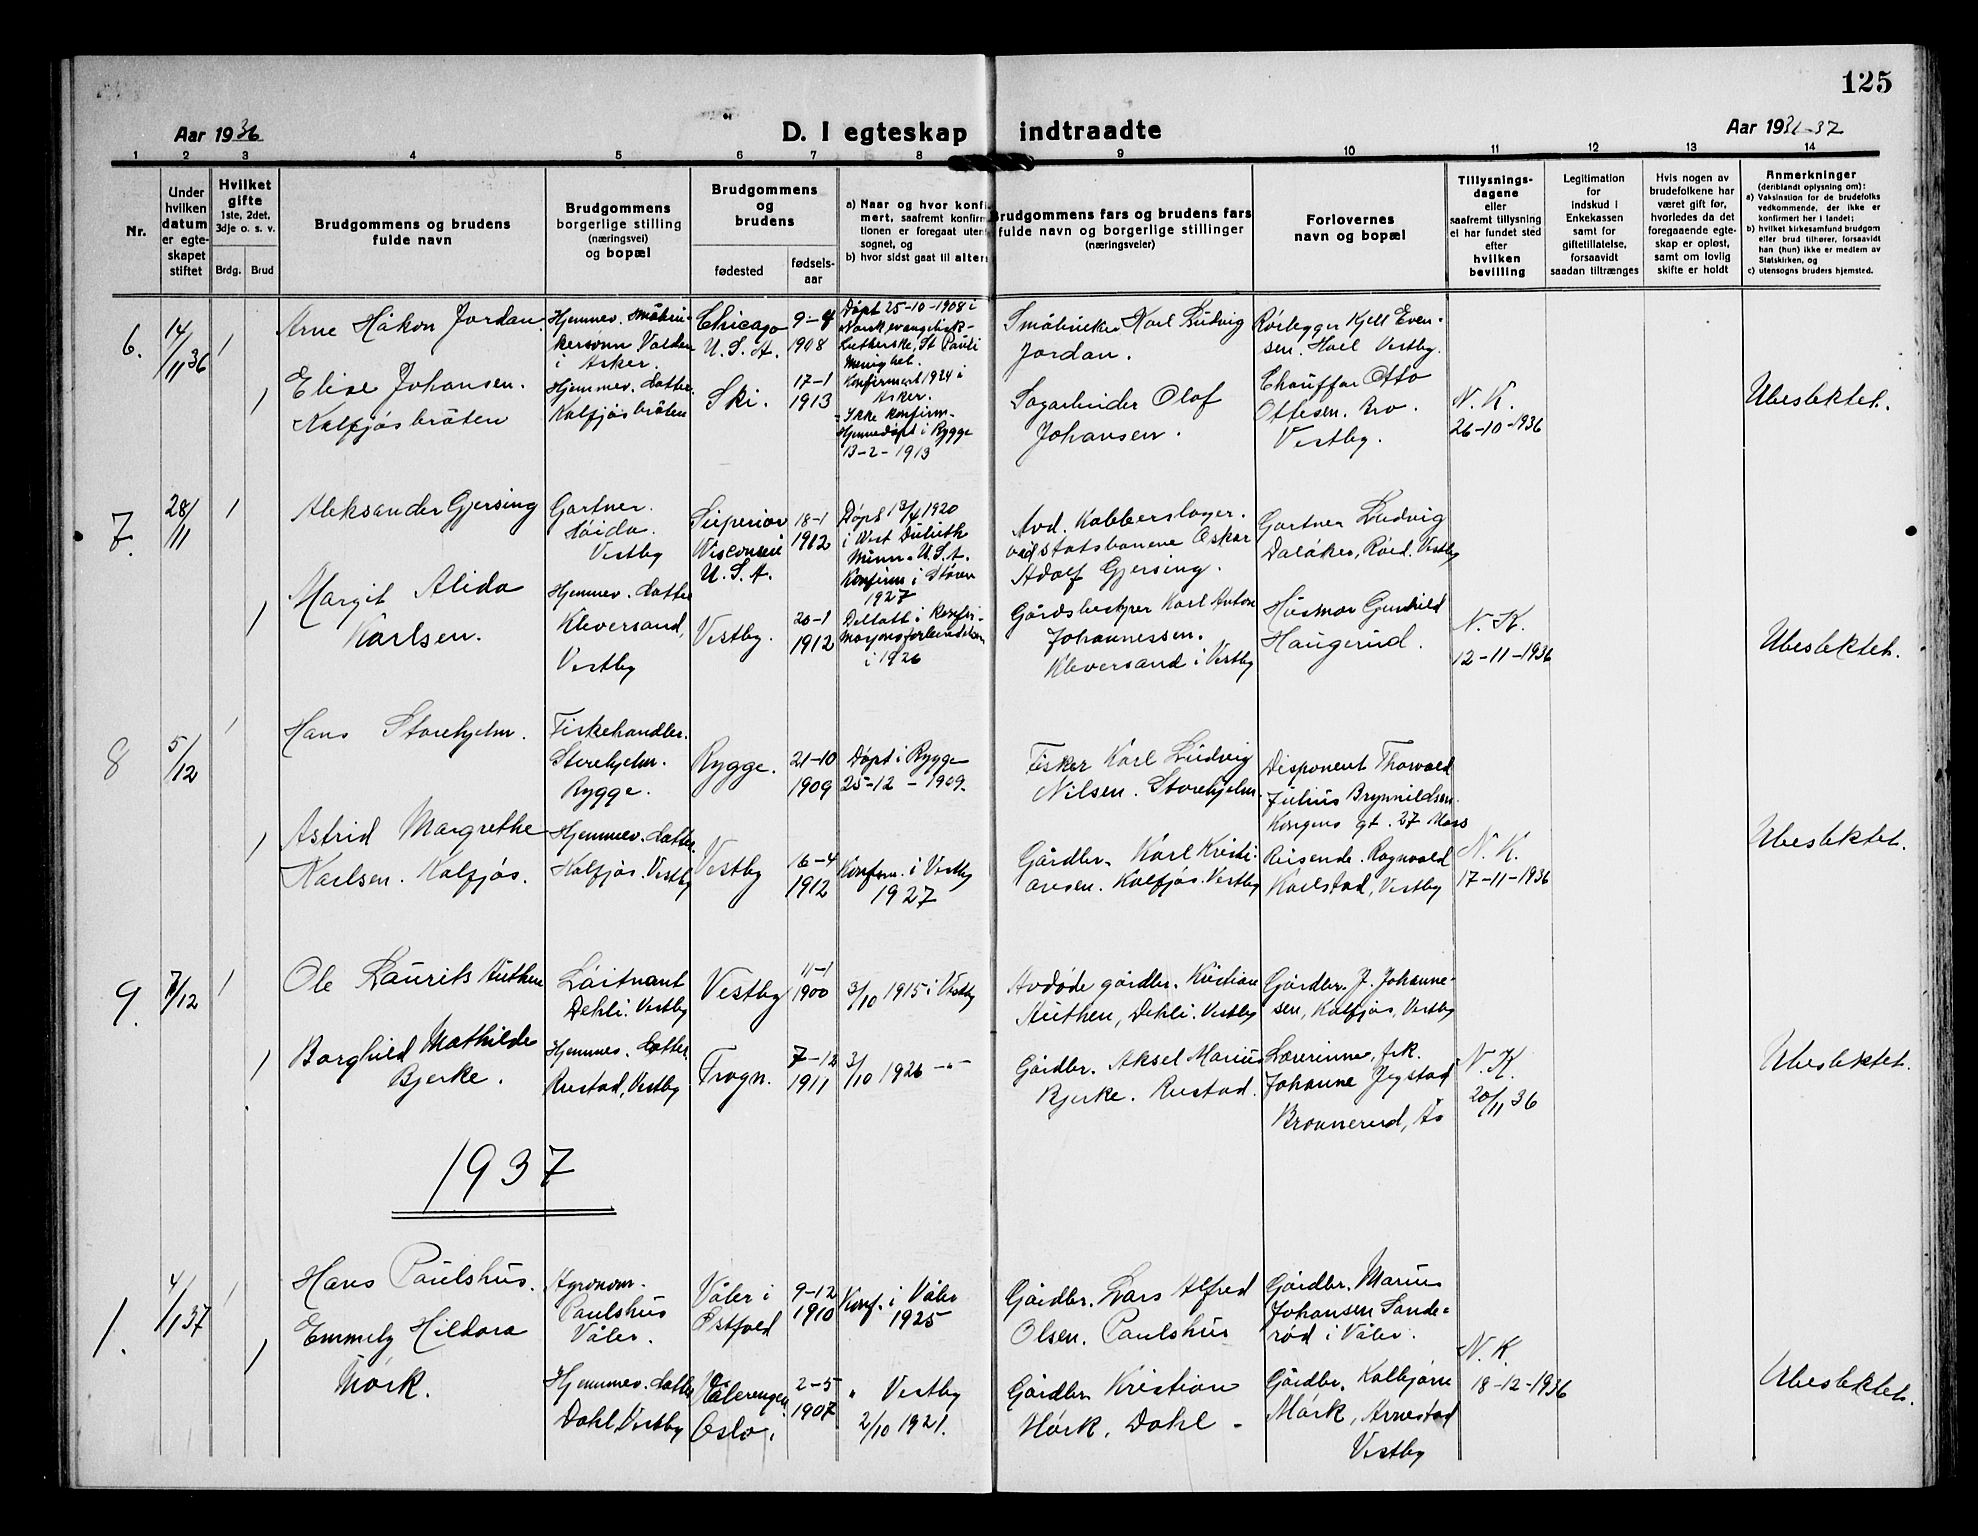 125
Aar 1936
D. I egteskap indtraadte
Aar 1936-37
1 2 3 4 5 6 7 8 9 10 11 12 13 14
Nr.
Under
hvilken
datum
er egte-
skapet
stiftet
Hvilket
gifte
1ste, 2det,
3dje o. s. v.
Brdg. Brud
Brudgommens og brudens
fulde navn
Brudgommens
borgerlige stilling
(næringsvei)
og bopæl
Brudgommens
og
brudens
fødested
fødsels-
aar
a) Naar og hvor konfir
mert, saafremt konfirm
tionen er foregaat uten
sognet, og
b) hvor sidst gaat til alters
Brudgommens fars og brudens fars
fulde navn og borgerlige stillinger
(næringsveier)
Forlovernes
navn og bopæl
Tillysnings-
dagene
eller
saafremt tillysning
ei har fundet sted
efter
hvilken
bevilling
Legitimation
for
indskud i
Enkekassen
samt for
giftetillatelse,
forsaavidt
saadan tiltrænges
Hvis nogen av
brudefolkene har
været gift før,
hvorledes da det
foregaaende egte-
skap er opløst,
samt om lovlig
skifte er holdt
Anmerkninger
(deriblandt oplysning om):
a) Vaksination for de brudefolks
vedkommende, der ikke er
konfirmert her i landet;
b) hvilket kirkesamfund brudgom
eller brud tilhører, forsaavidt
han (hun) ikke er medlem av
Statskirken, og
c) utensogns bruders hjemsted.
6.
14/11 36
1
Arne Håkon Jordan
Hjemmev. småbru-
kersønn Valden
i Asker.
Chicago
U.S.A.
9-9
1908
Døpt 25-10-1908 i
Norsk evangelisk-
Lutherske, St Pauli
Menighet.
Konfirmert 1924 i
Asker.
Småbruker Karl Ludvig
Jordan.
Rørlegger Kjell Even-
sen. Hoel Vestby.
1
Elise Johansen.
Kalfjøsbråten
Hjemmev. datter
Kalfjøsbråten
Ski.
17-1
1913
Ikke konfirm-
Hjemmedøpt i Rygge
13-2-1913
Sagarbeider Olof
Johansen.
Chauffør Otto
Ottesen. Bro.
Vestby.
N.K.
26-10-1936
Ubeslektet.
7.
28/11
1
Aleksander Gjersing
Gartner.
Høida.
Vestby
Superior
Wisconsin
U.S.A.
18-1
1912
Døpt 13/4 1920
i West Duluth
Minn. U.S.A.
Konfirm i Støren
1927
Avd. Kobberslager.
ved statsbanene Oskar
Adolf Gjersing.
Gartner Ludvig
Daløker, Røed. Vestby
1
Margit Alida
Karlsen.
Hjemmev. datter
Kleversand,
Vestby
Vestby.
20-1
1912
Deltatt i konfir-
masjonsforberedelsen
i 1926
Gårdsbestyrer Karl Anton
Johannessen.
Kleversand i Vestby
Husmor Gunhild
Haugerud.
N.K.
12-11-1936
Ubeslektet.
8
5/12
1
Hans Storehjelm.
Fiskehandler.
Storehjelm.
Rygge.
Rygge.
21-10
1909
Døpt i Rygge
25-12-1909.
Fisker Karl Ludvig
Nilsen. Storehjelm.
Disponent Thorvald
Julius Brynnildsen.
Kongens gt. 27 Moss
1
Astrid Margrethe
Karlsen. Kalfjøs.
Hjemmev. datter.
Kalfjøs. Vestby
Vestby
16-4
1912
Konfirm. i Vestby
1927
Gårdbr. Karl Kristi-
ansen. Kalfjøs. Vestby
Reisende. Ragnvald
Karlstad, Vestby
N.K.
17-11-1936
Ubeslektet.
9.
7/12
1
Ole Laurits Huthen
Løitnant
Dehli. Vestby
Vestby
11-1
1900
3/10 1915 i Vestby
Avdøde gårdbr. Kristian
Huthen, Dehli. Vestby
Gårdbr. J. Johanne-
sen, Kalfjøs, Vestby
1
Borghild Mathilde
Bjerke.
Hjemmev. datter.
Rustad, Vestby
Frogn.
7-12
1911
3/10 1926 -"-
Gårdbr. Aksel Marius
Bjerke. Rustad.
Lærerinne, frk.
Johanne Jegstad
Brønnerud, Ås
N.K.
20/11 36
Ubeslektet.
1937
1.
4/1 37
1
Hans Paulshus.
Agronom.
Paulshus
Våler.
Våler i
Østfold
9-12
1910
Konf. i Våler
1925
Gårdbr. Lars Alfred
Olsen. Paulshus
Gårdbr. Marius
Johansen Sande-
rød i Våler.
1
Emmely Hildora
Mørk.
Hjemmev. datter
Dahl, Vestby
Vålerengen
Oslo.
2-5
1907
" Vestby
2/10 1921.
Gårdbr. Kristian
Mørk. Dahl -
Gårdbr. Kolbjørn
Mørk, Arnestad
Vestby
N.K.
18-12-1936
Ubeslektet.